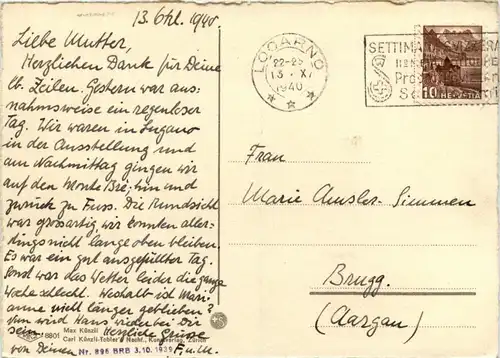 13. Okt. 1940.
Liebe Mutter,
Herzlichen Dank für Deine
lb. Zeilen. Gestern war aus-
nahmsweise ein regenloser
Tag. Wir waren in Lugano
in der Ausstellung und
am Nachmittag gingen wir
auf den Monte Brè, hin und
zurück zu Fuss. Die Rundsicht
war grossartig, wir konnten aller-
dings nicht lange oben bleiben.
Es war ein gut ausgefüllter Tag.
Sonst war das Wetter leider die ganze
Woche schlecht. Weshalb ist Mari-
anne nicht länger geblieben?
Nun wird Hans wieder bei Dir
sein. Herzliche Grüsse
von Deinen F. u. M.
8801
Max Künzli
Carl Künzli-Tobler's Nachf., Kunstverlag, Zürich
Nr. 896 BRB 3.10.1939
LOCARNO
22-23
13. X.
1940
SETTIMANA SVIZZERA
10 HELVETIA
Frau
Marie Amsler-Simmen
Brugg.
(Aargau)